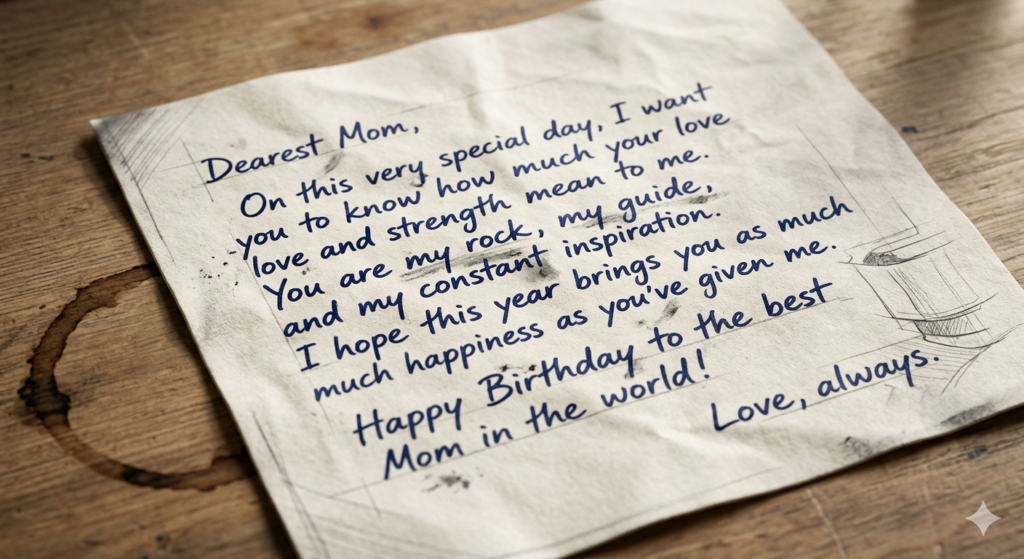 Dearest Mom,
On this very special day, I want
you to know how much your love
love and strength mean to me.
You are my rock, my guide,
and my constant inspiration.
I hope this year brings you as much
much happiness as you've given me.
Happy Birthday to the best
Mom in the world!
Love, always.